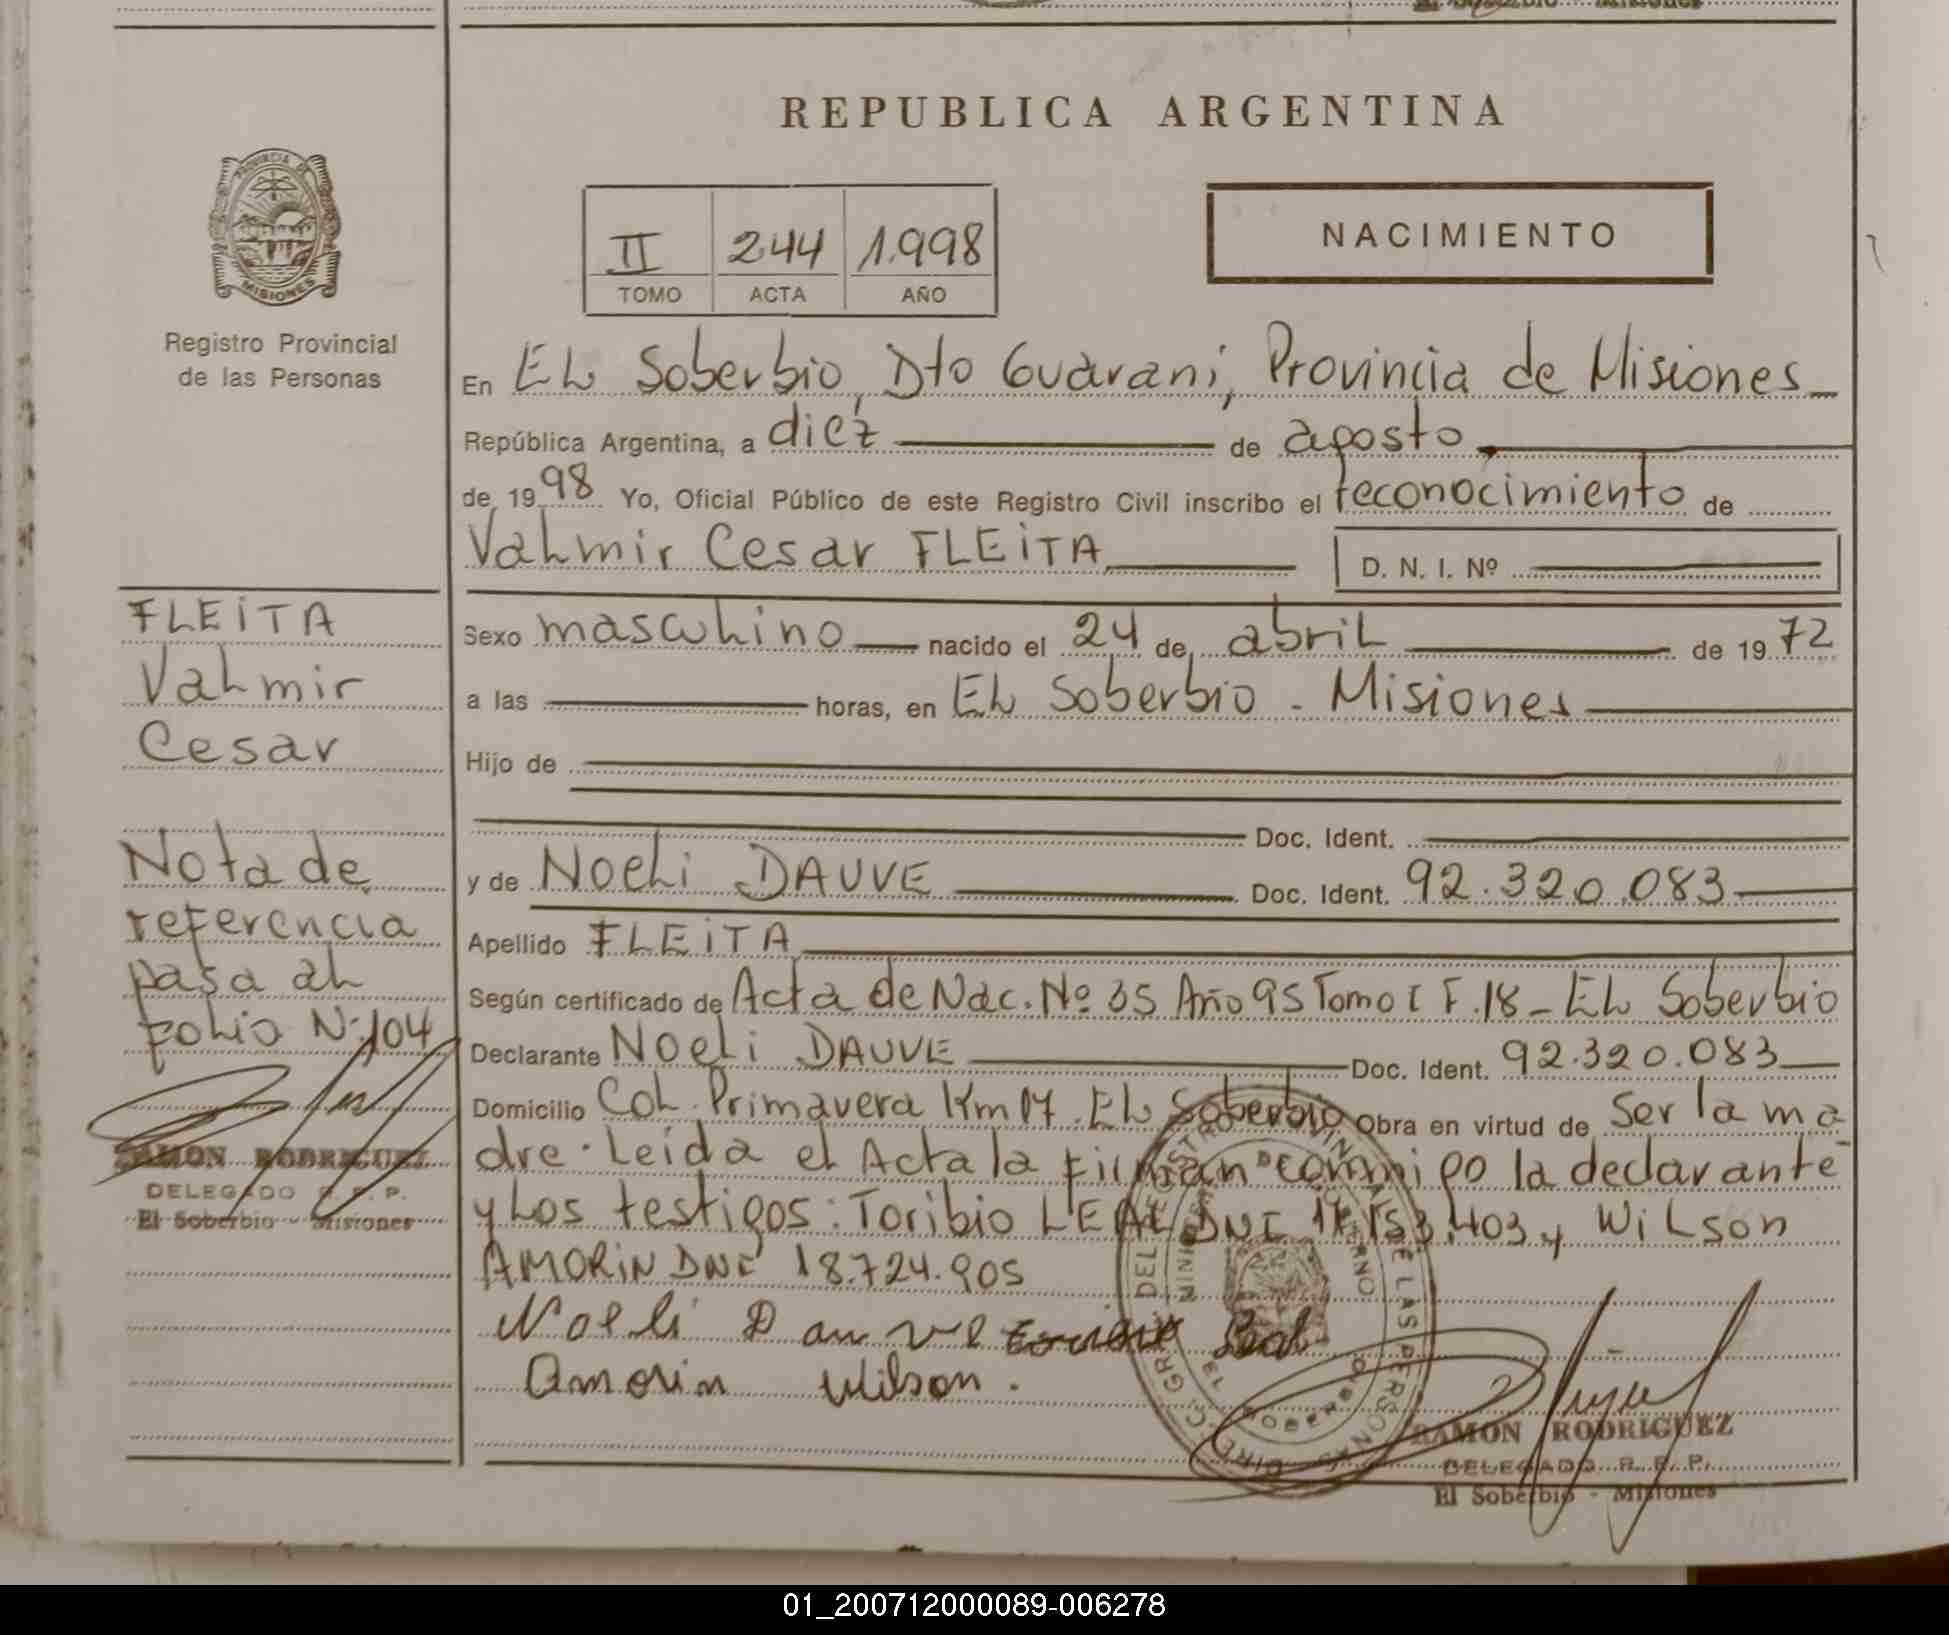 El Soberbio - Misiones
REPUBLICA ARGENTINA
PROVINCIA DE
MISIONES
Registro Provincial
de las Personas
II 244 1.998
TOMO ACTA AÑO
NACIMIENTO
En EL Soberbio, Dto Guarani, Provincia de Misiones
República Argentina, a diez de agosto
de 1998 Yo, Oficial Público de este Registro Civil inscribo el reconocimiento de
Valmir Cesar FLEiTA D. N. I. Nº
Sexo masculino nacido el 24 de abril de 1972
a las horas, en EL Soberbio - Misiones
Hijo de
Doc. Ident.
y de Noeli DAUVE Doc. Ident. 92.320.083
Apellido FLEiTA
Según certificado de Acta de Nac. Nº 35 Año 95 Tomo I F. 18 - EL Soberbio
Declarante Noeli DAUVE Doc. Ident. 92.320.083
Domicilio Col. Primavera Km 17. EL Soberbio Obra en virtud de Ser la ma
dre. Leida el Acta la Firman conmigo la declarante
y Los testigos: Toribio LEAL DNI 153.403 y WiLson
AMORiN DNI 18.724.905
Noeli Dauve Leal
Amorin Wilson.
RAMON RODRIGUEZ
DELEGADO R. P. P.
El Soberbio - Misiones
FLEiTA
Valmir
Cesar
Nota de
referencia
pasa al
folio Nº 104
RAMON RODRIGUEZ
DELEGADO R. P. P.
El Soberbio - Misiones
01_200712000089-006278